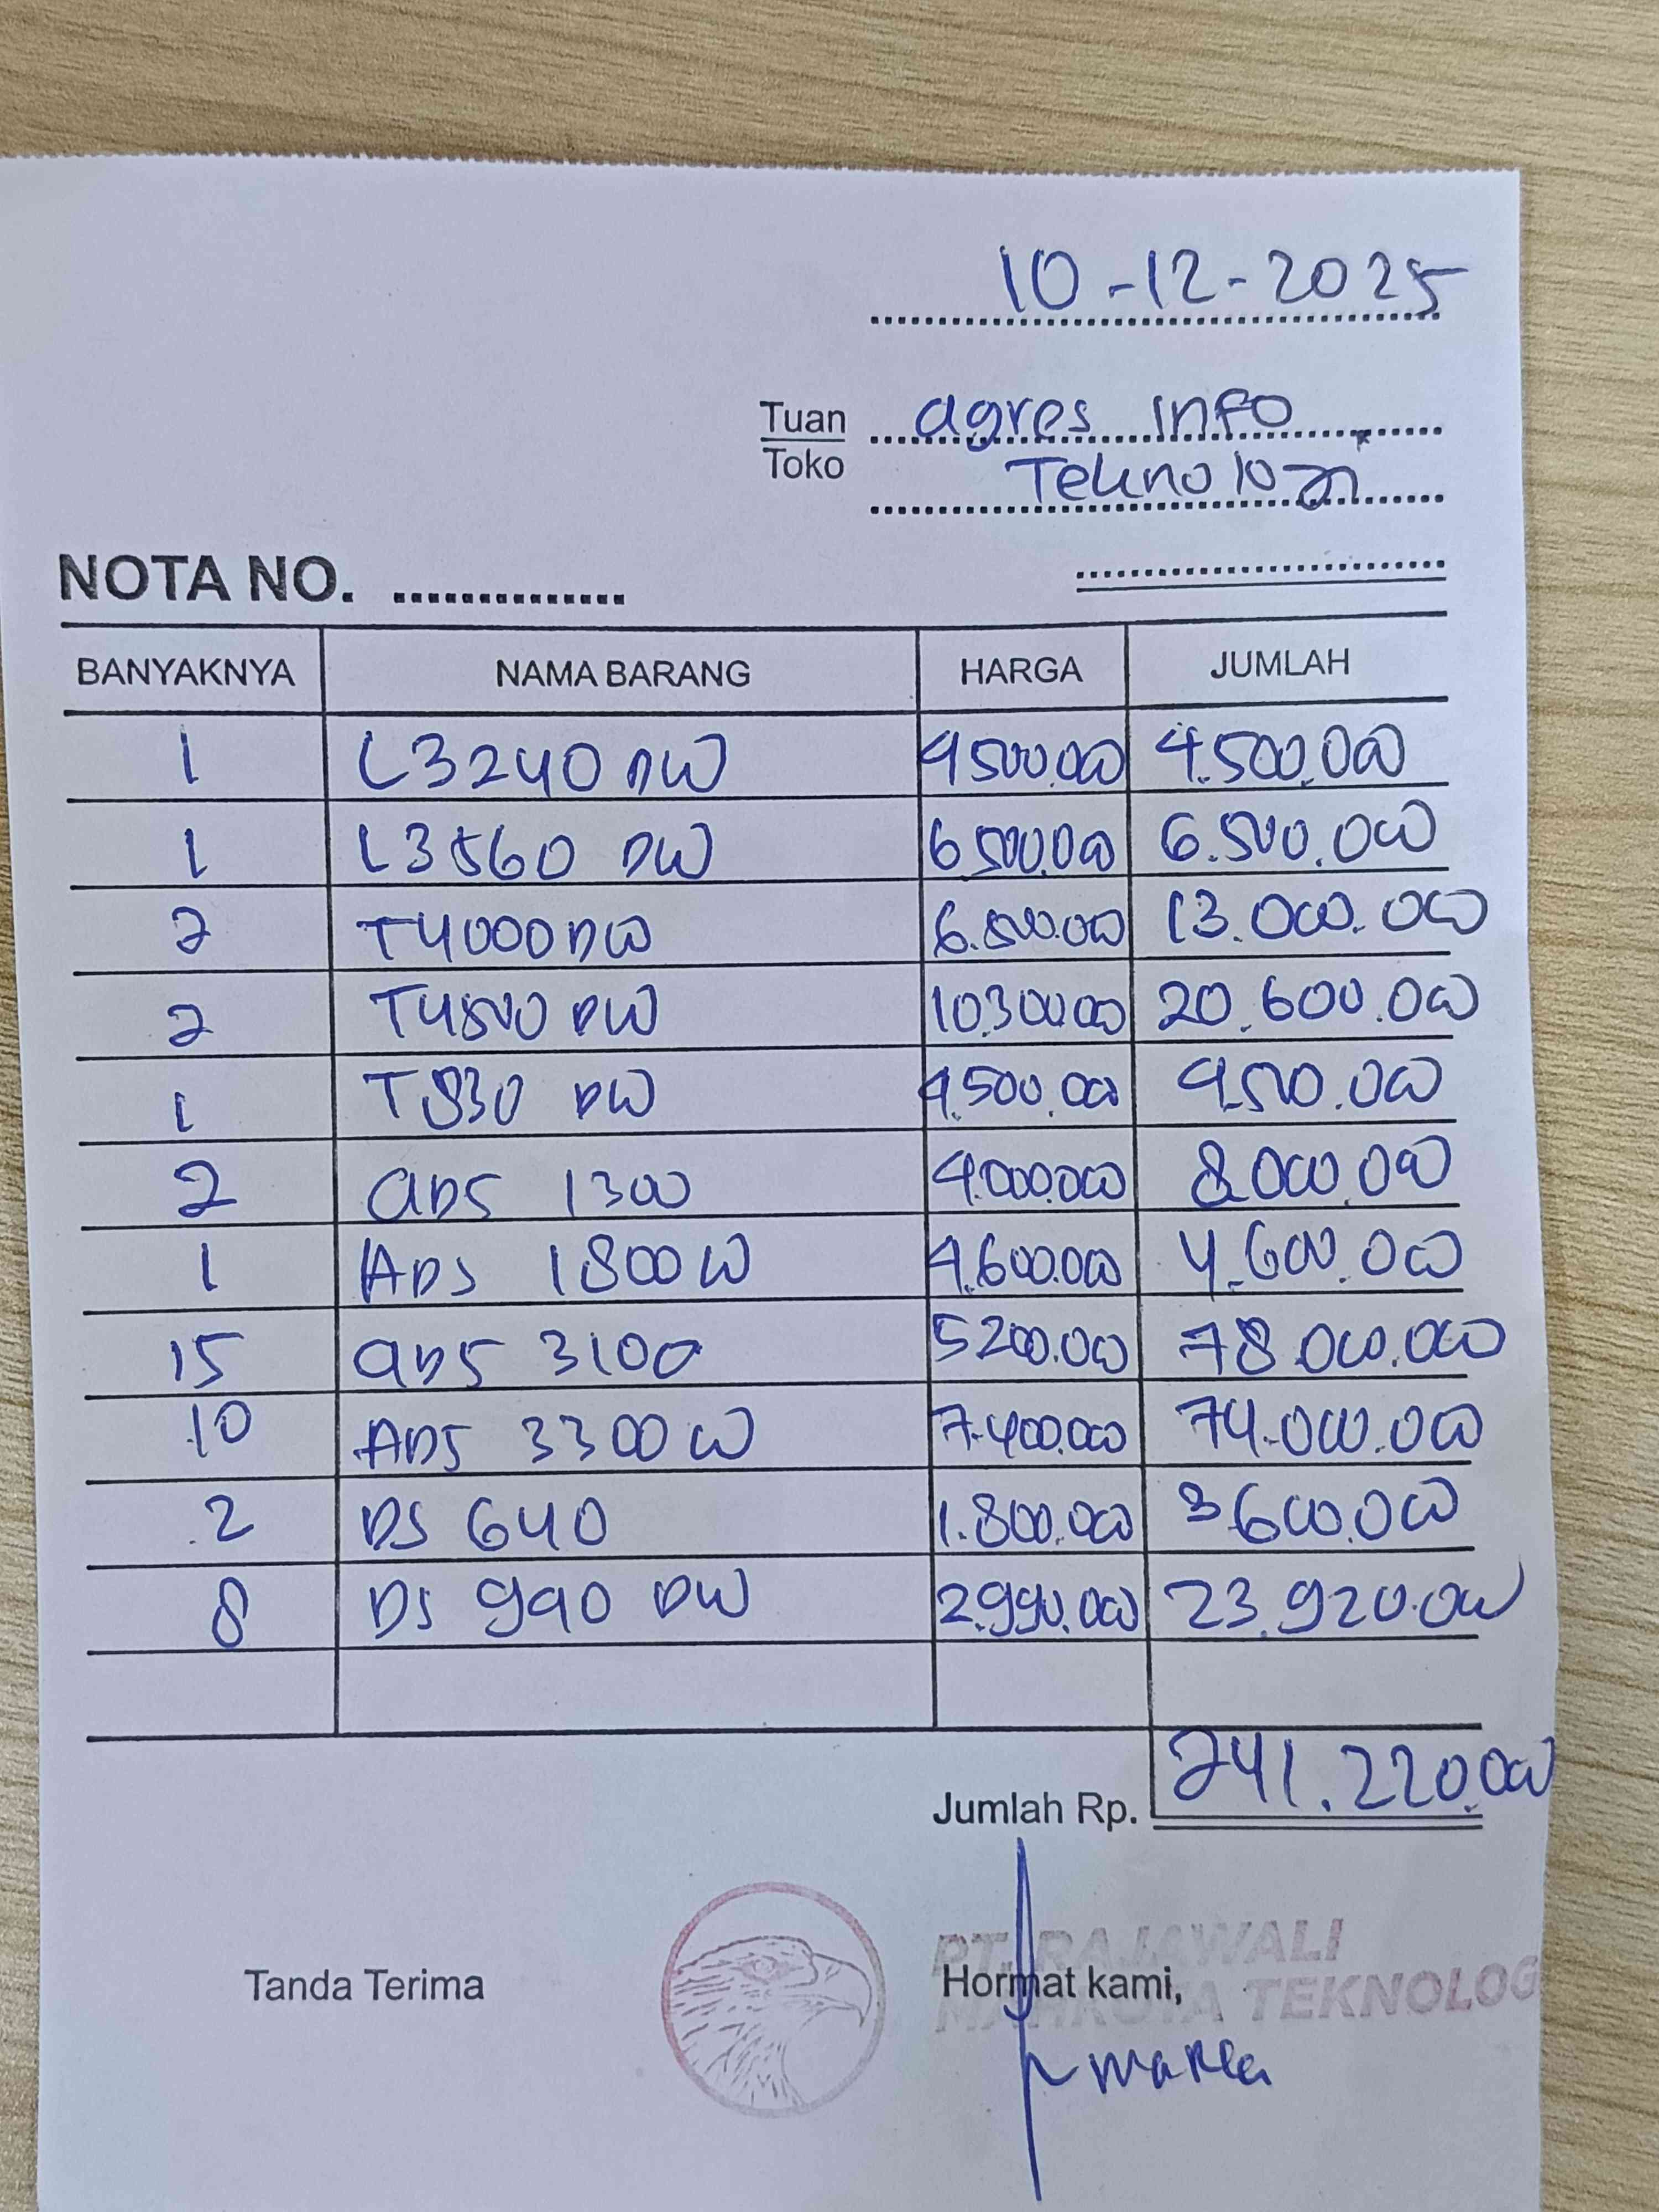 10-12-2025
Tuan agres info
Toko Teknologi
NOTA NO. ..............
BANYAKNYA NAMA BARANG HARGA JUMLAH
1 L3240 DW 4500.000 4.500.000
1 L3560 DW 6.500.000 6.500.000
2 T4000 DW 6.500.000 13.000.000
2 T4500 DW 10.300.000 20.600.000
1 T830 DW 4.500.000 4.500.000
2 aDS 1300 4.000.000 8.000.000
1 ADS 1800 W 4.600.000 4.600.000
15 aDS 3100 5200.000 78.000.000
10 ADS 3300 W 7.400.000 74.000.000
2 DS 640 1.800.000 3600.000
8 DS 990 DW 2.990.000 23.920.000
Jumlah Rp. 241.220.000
Tanda Terima Hormat kami,
PT. RAJAWALI
MAHKOTA TEKNOLOG